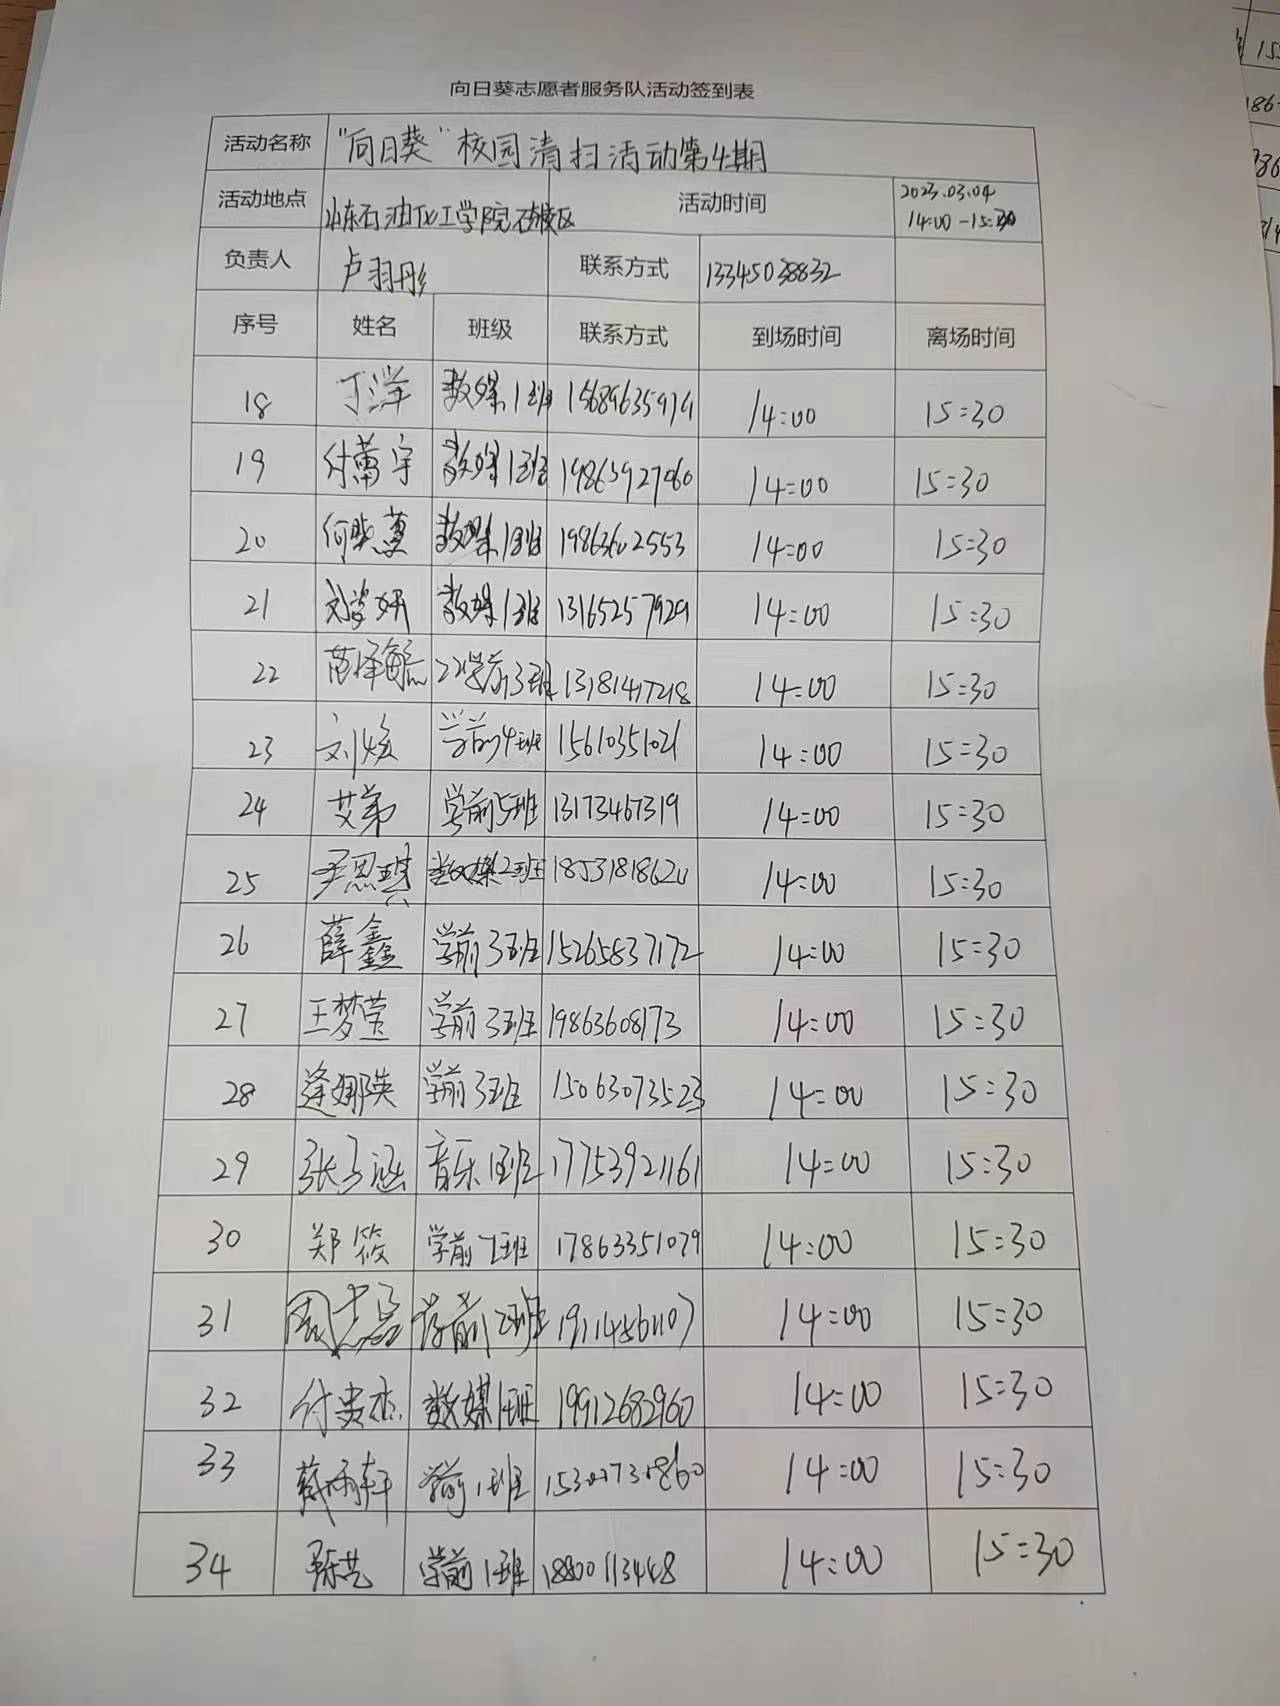 向日葵志愿者服务队活动签到表
活动名称 "向日葵"校园清扫活动第4期
活动地点 山东石油化工学院 校区 活动时间 2023.03.04
14:00-15:30
负责人 卢羽彤 联系方式 13345038832
序号 姓名 班级 联系方式 到场时间 离场时间
18 丁洋 数媒1班 14:00 15:30
19 付蕾宇 数媒1班 19863927060 14:00 15:30
20 数媒1班 19863602553 14:00 15:30
21 数媒1班 13165257929 14:00 15:30
22 22学前3班 13181417218 14:00 15:30
23 学前4班 15610351021 14:00 15:30
24 艾弟 学前5班 13173467319 14:00 15:30
25 尹思琪 数媒2班 18531818620 14:00 15:30
26 薛鑫 学前3班 15265837172 14:00 15:30
27 王梦莹 学前3班 19863608173 14:00 15:30
28 逄娜英 学前3班 15063073523 14:00 15:30
29 张子涵 音乐1班 17753921161 14:00 15:30
30 郑筱 学前1班 17863351079 14:00 15:30
31 学前2班 14:00 15:30
32 付贵杰 数媒1班 19912682960 14:00 15:30
33 学前1班 14:00 15:30
34 学前1班 18800113448 14:00 15:30